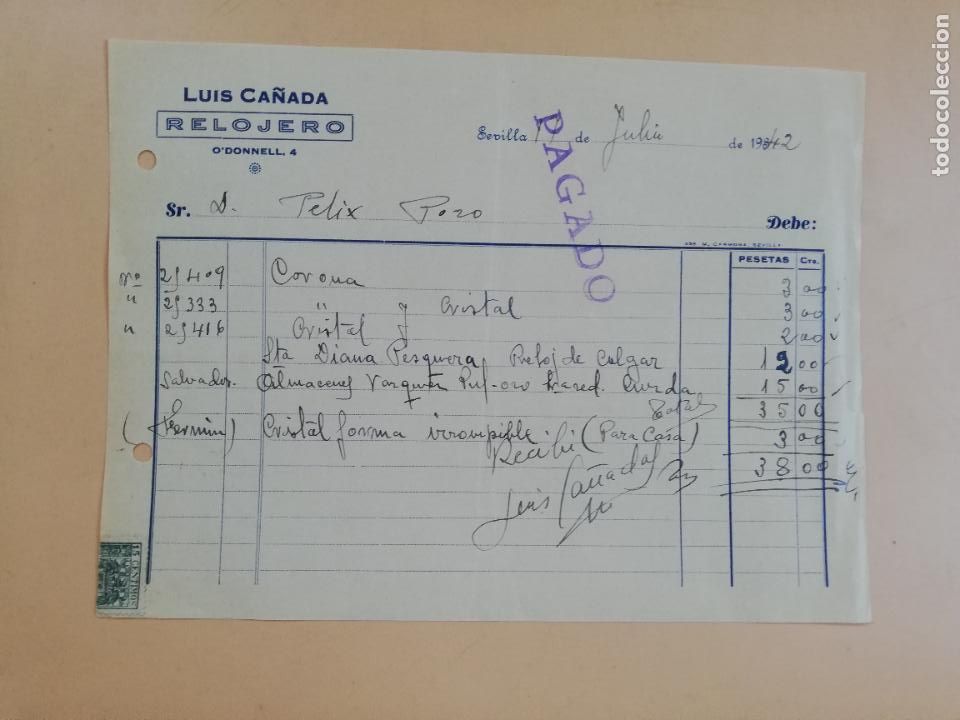 LUIS CAÑADA
RELOJERO
O'DONNELL, 4
Sevilla de Julio de 1942
PAGADO
Sr. D. Felix Pozo
Debe:
PESETAS Cts.
nº 25409 Corona 3 00
" 25333 " y Cristal 3 00
" 25416 Cristal y 2 00
Sta Diana Pesquera Reloj de Colgar 12 00
Salvador. Almacenes Vazquez Pul-oro Cuerda 15 00
Total 35 00
(Fermin) Cristal forma irrompible. (Para Casa) 3 00
Recibi
38 00
Luis Cañada
15 CENTIMOS
todocoleccion